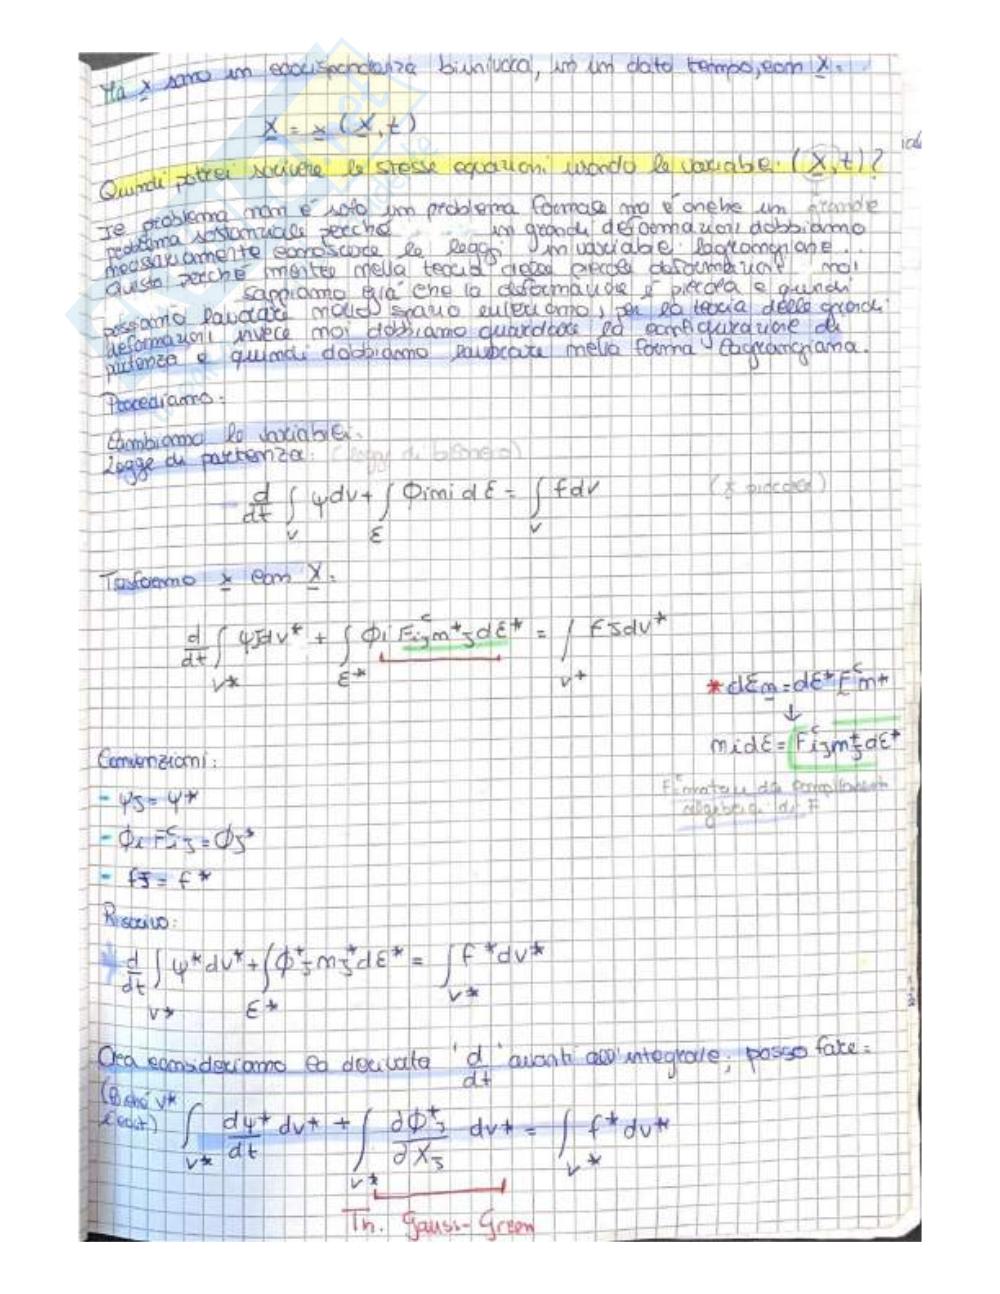 Ma x sono in corrispondenza biunivoca, in un dato tempo, con X.
x = x (X, t)
Quindi potrei scrivere le stesse equazioni usando le variabili (X, t)?
Il problema non è solo un problema formale ma è anche un grande
problema sostanziale perché in grandi deformazioni dobbiamo
necessariamente conoscere le leggi in variabile lagrangiane...
Questo perché mentre nella teoria delle piccole deformazioni noi
sappiamo già che la deformazione è piccola e quindi
possiamo lavorare nello spazio euleriano, per la teoria delle grandi
deformazioni invece noi dobbiamo guardare la configurazione di
partenza e quindi dobbiamo lavorare nella forma Lagrangiana.
Procediamo:
Cambiamo le variabili.
Legge di partenza: (legge di bilancio)
d/dt ∫_V ψ dv + ∫_Σ Φi ni dΣ = ∫_V f dv
Trasformo x con X:
d/dt ∫_V* ψJ dv* + ∫_Σ* Φi F^c_iJ n*_J dΣ* = ∫_V* fJ dv*
* dΣ n = dΣ* F^c n*
↓
ni dΣ = F^c_iJ n*_J dΣ*
Convenzioni:
- ψJ = ψ*
- Φi F^c_iJ = Φ*_J
- fJ = f*
Riscrivo:
d/dt ∫_V* ψ* dv* + ∫_Σ* Φ*_J n*_J dΣ* = ∫_V* f* dv*
Ora consideriamo la derivata d/dt avanti all'integrale, posso fare:
∫_V* dψ*/dt dv* + ∫_V* ∂Φ*_J/∂X_J dv* = ∫_V* f* dv*
Th. Gauss-Green